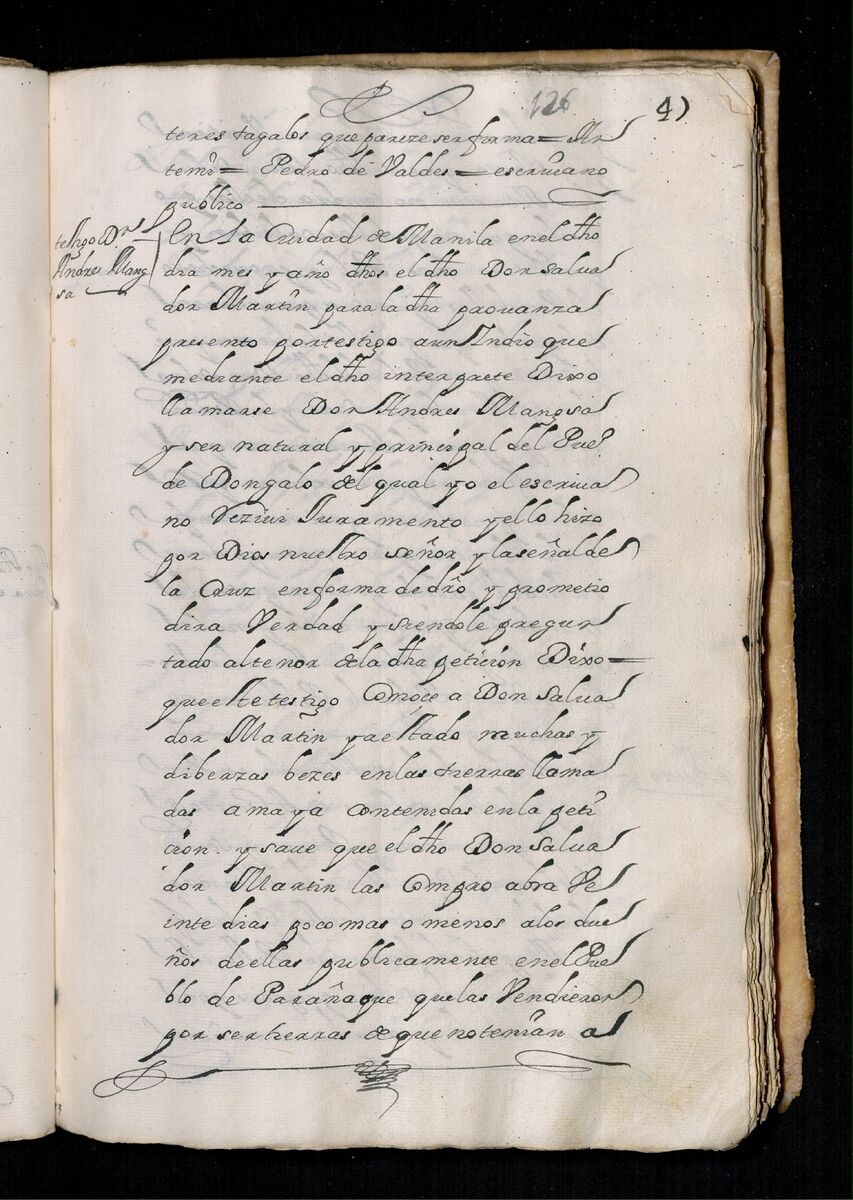 126
41
teres tagalos que pareze ser firma = An
temi = Pedro de Valdes = escriuano
publico
testigo Dn
Andres Mang
sa
En la Ciudad de Manila en el dho
dia mes y año dhos el dho Don Salua
dor Martin para la dha prouanza
presento por testigo a un Indio que
mediante el dho interprete Dixo
llamarse Don Andres Mangsa
y ser natural y principal del Pueo
de Dongalo del qual yo el escriua
no Reziui Juramento y ello hizo
por Dios nuestro señor y la señal de
la Cruz en forma de dro y prometio
dira Verdad y siendole pregun
tado al tenor de la dha peticion Dixo =
que este testigo Conoce a Don Salua
dor Martin y a estado muchas y
diberzas bezes en las tierras llama
das amaya contenidas en la peti
cion. y saue que el dho Don Salua
dor Martin las Compro abra Ve
inte dias poco mas o menos a los due
ños de ellas publicamente en el Pue
blo de Parañaque que las Vendieron
por ser tierras de que no tenian a